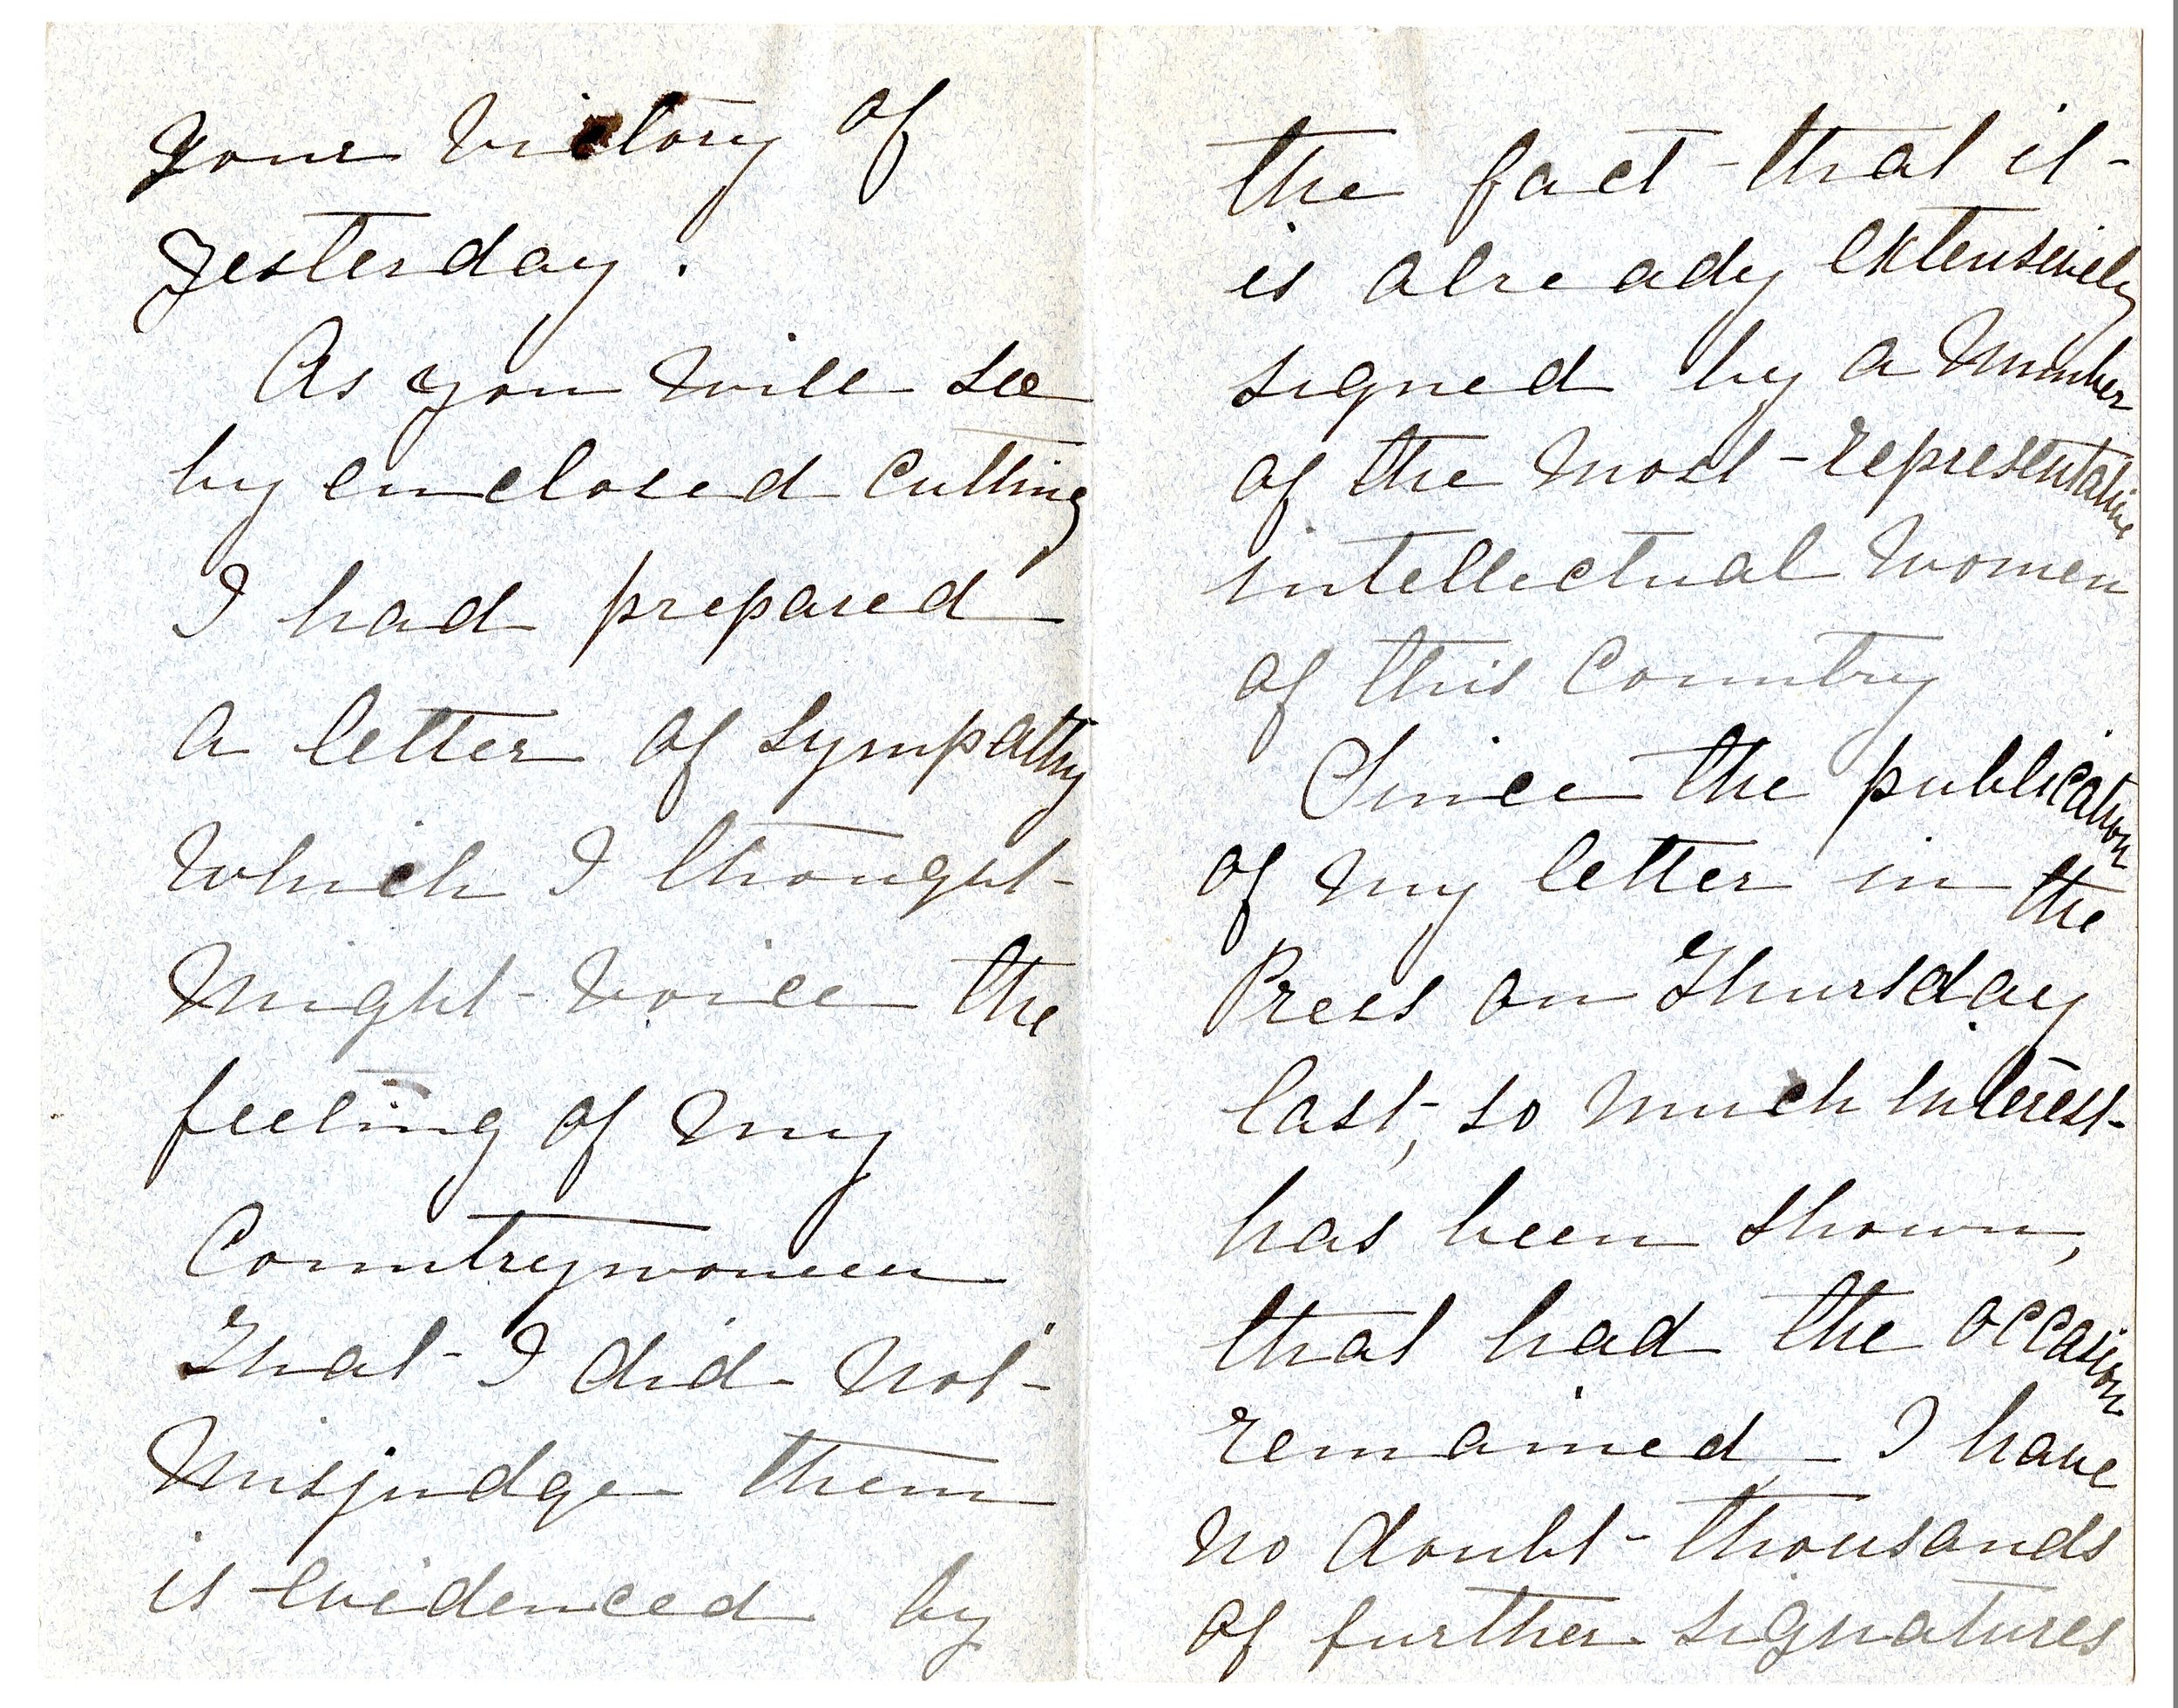 your victory of
yesterday.
As you will see
by enclosed cutting
I had prepared
a letter of sympathy
which I thought
might voice the
feeling of my
Countrywomen
That I did not
misjudge them
is evidenced by
the fact that it
is already extensively
signed by a number
of the most representative
intellectual women
of this Country
Since the publication
of my letter in the
Press on Thursday
last, so much interest
has been shown,
that had the occasion
remained I have
no doubt thousands
of further signatures